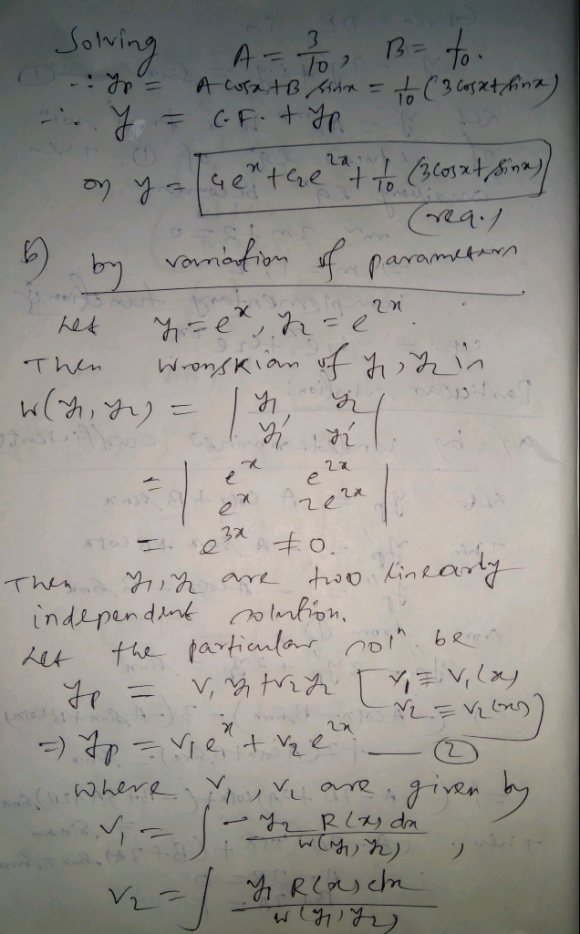 Solving A = 3/10, B = 1/10.
∴ yp = A cosx + B sinx = 1/10 (3cosx + sinx)
∴ y = C.F. + yp
or y = c1e^x + c2e^2x + 1/10 (3cosx + sinx)
(req.)
b) by variation of parameters
Let y1 = e^x, y2 = e^2x.
Then Wronskian of y1, y2 is
W(y1, y2) = | y1 y2 |
| y1' y2' |
= | e^x e^2x |
| e^x 2e^2x |
= e^3x ≠ 0.
Then y1, y2 are two linearly
independent solution.
Let the particular solⁿ be
yp = v1 y1 + v2 y2 [ v1 ≡ v1(x)
v2 ≡ v2(x) ]
⇒ yp = v1e^x + v2e^2x — (2)
where v1, v2 are given by
v1 = ∫ -y2 R(x) dx / W(y1, y2) ,
v2 = ∫ y1 R(x) dx / W(y1, y2)